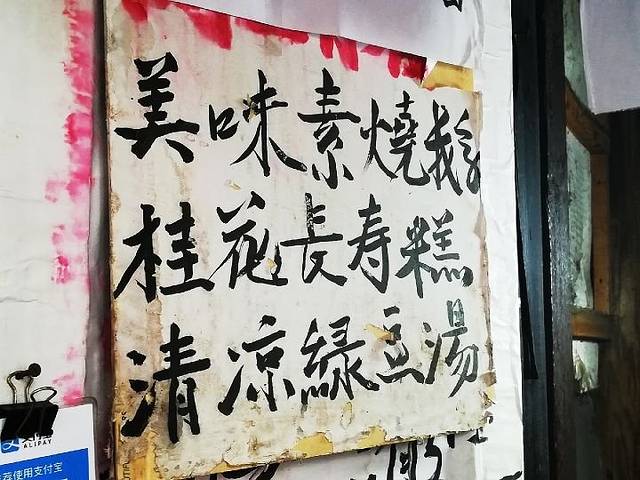 美味素燒鵝
桂花長寿糕
清凉綠豆湯
ALIPAY
荐使用支付宝